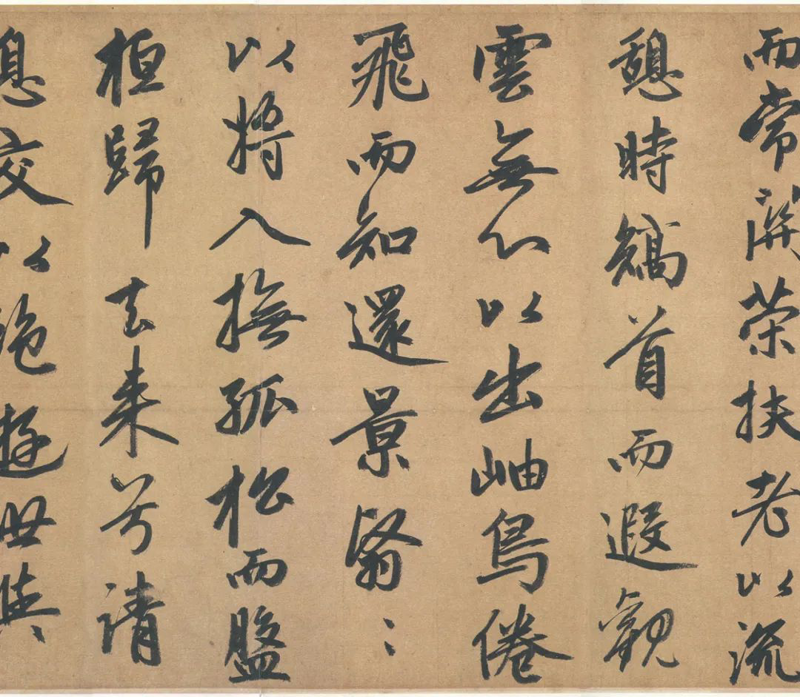 而常関策扶老以流
憩時矯首而遐觀
雲無心以出岫鳥倦
飛而知還景翳〻
以將入撫孤松而盤
桓歸去来兮請
息交以絶遊世與